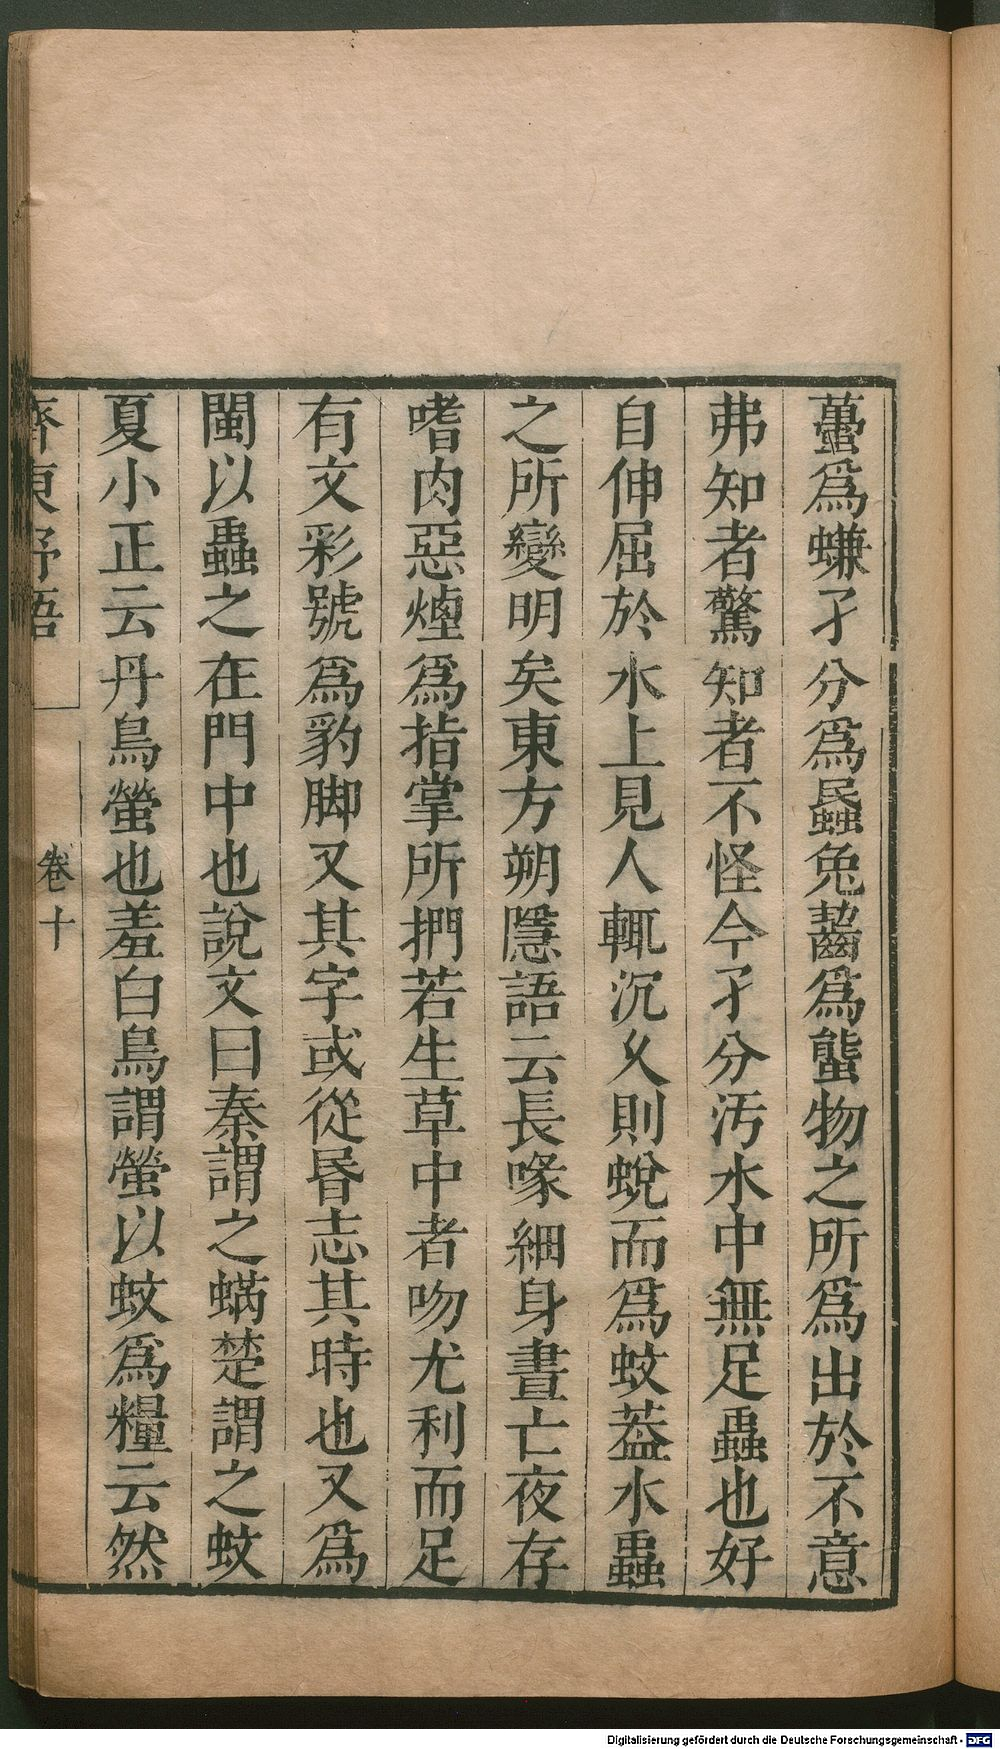 蠆爲蠊孑孒爲蟁兔齧爲螚物之所爲出於不意
弗知者驚知者不怪今孑孒汚水中無足蟲也好
自伸屈於水上見人輒沉久則蛻而爲蚊葢水蟲
之所變明矣東方朔隱語云長喙細身晝亡夜存
嗜肉惡煙爲指掌所捫若生草中者吻尤利而足
有文彩號爲豹脚又其字或從昬志其時也又爲
閩以蟲之在門中也說文曰秦謂之蜹楚謂之蚊
夏小正云丹鳥螢也羞白鳥謂螢以蚊爲糧云然
齊東野語
卷十
Digitalisierung gefördert durch die Deutsche Forschungsgemeinschaft - DFG